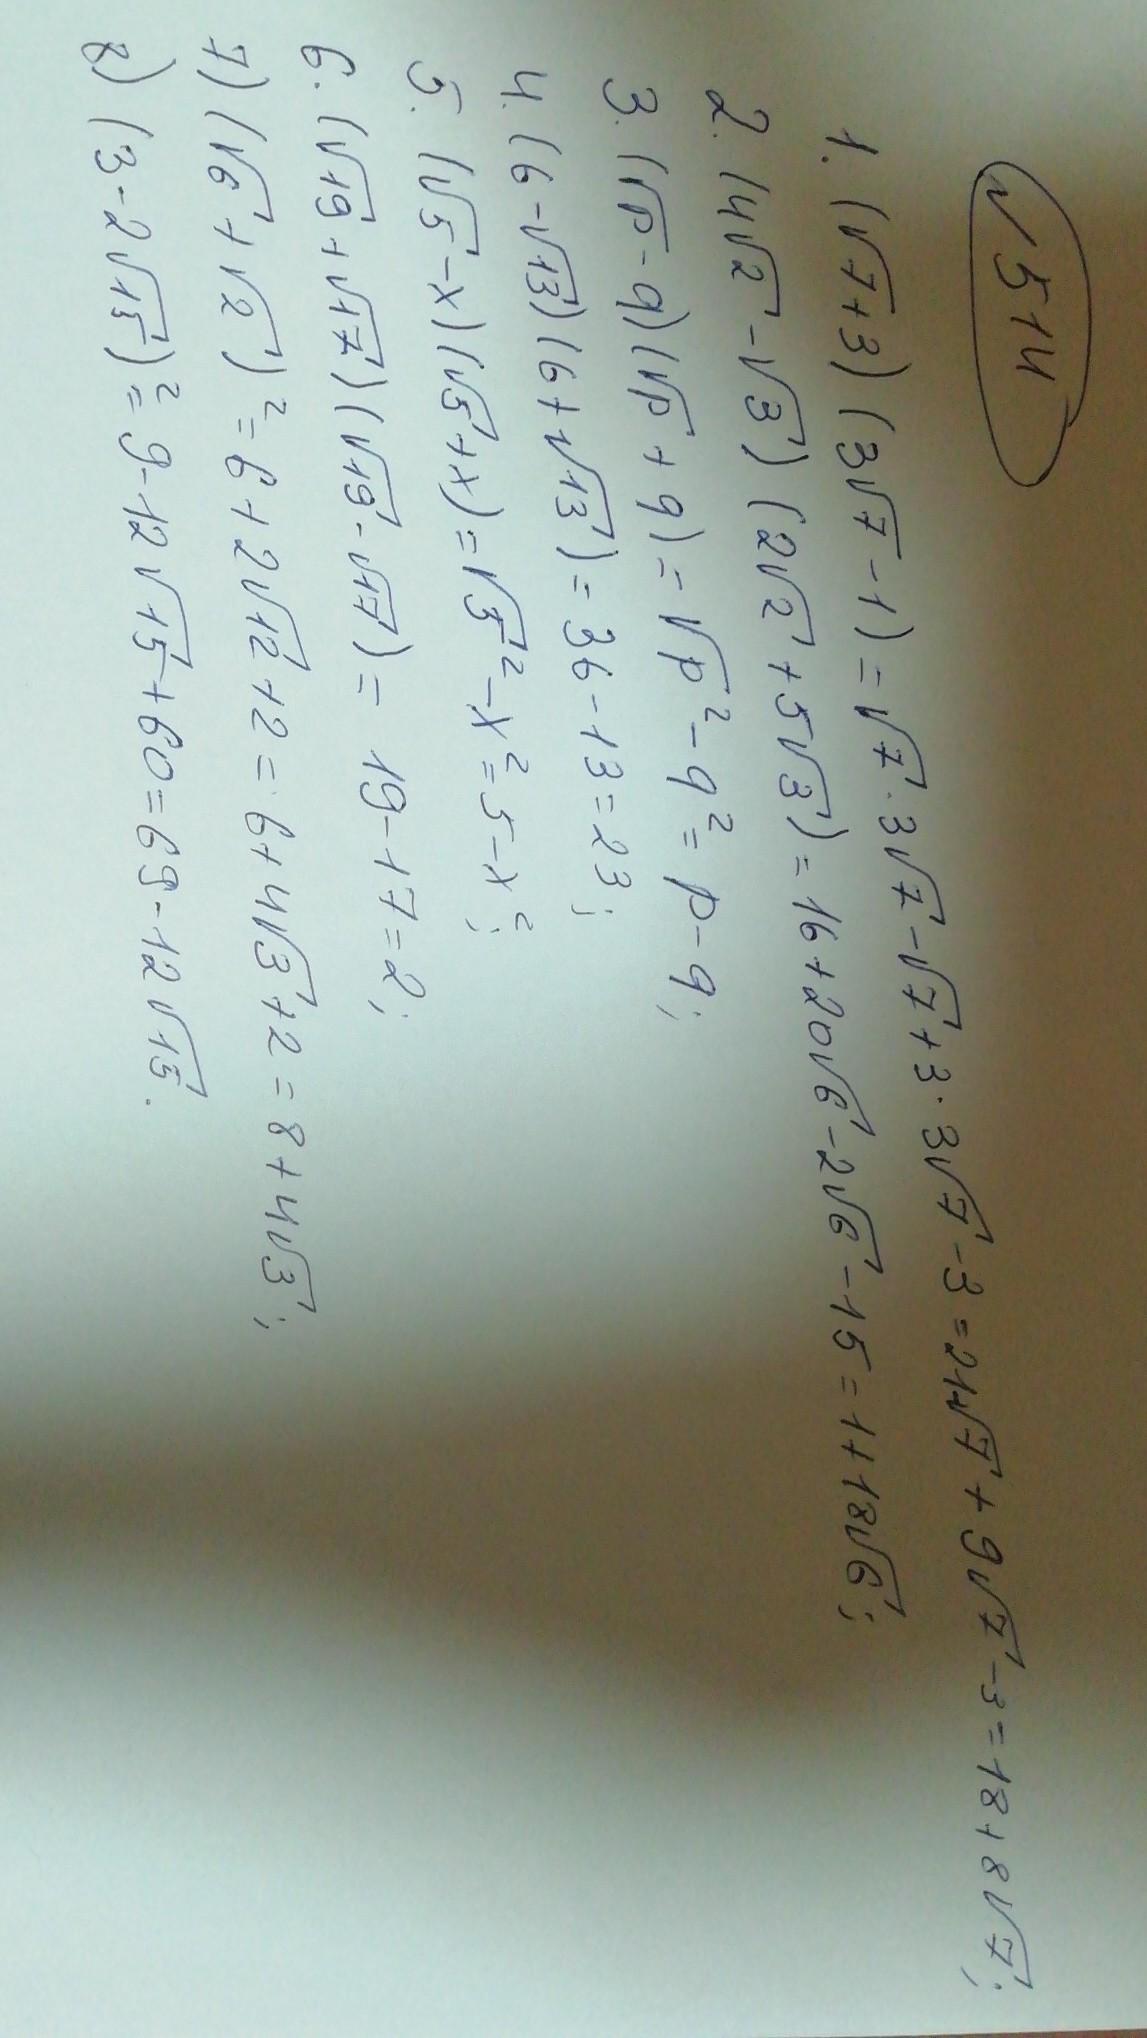 √514
1. (√7+3)(3√7-1)=√7·3√7-√7+3·3√7-3=21-√7+9√7-3=18+8√7;
2. (4√2-√3)(2√2+5√3)=16+20√6-2√6-15=1+18√6;
3. (√p-q)(√p+q)=√p²-q²=p-q;
4. (6-√13)(6+√13)=36-13=23;
5. (√5-x)(√5+x)=√5²-x²=5-x²;
6. (√19+√17)(√19-√17)=19-17=2;
7) (√6+√2)²=6+2√12+2=6+4√3+2=8+4√3;
8) (3-2√15)²=9-12√15+60=69-12√15.